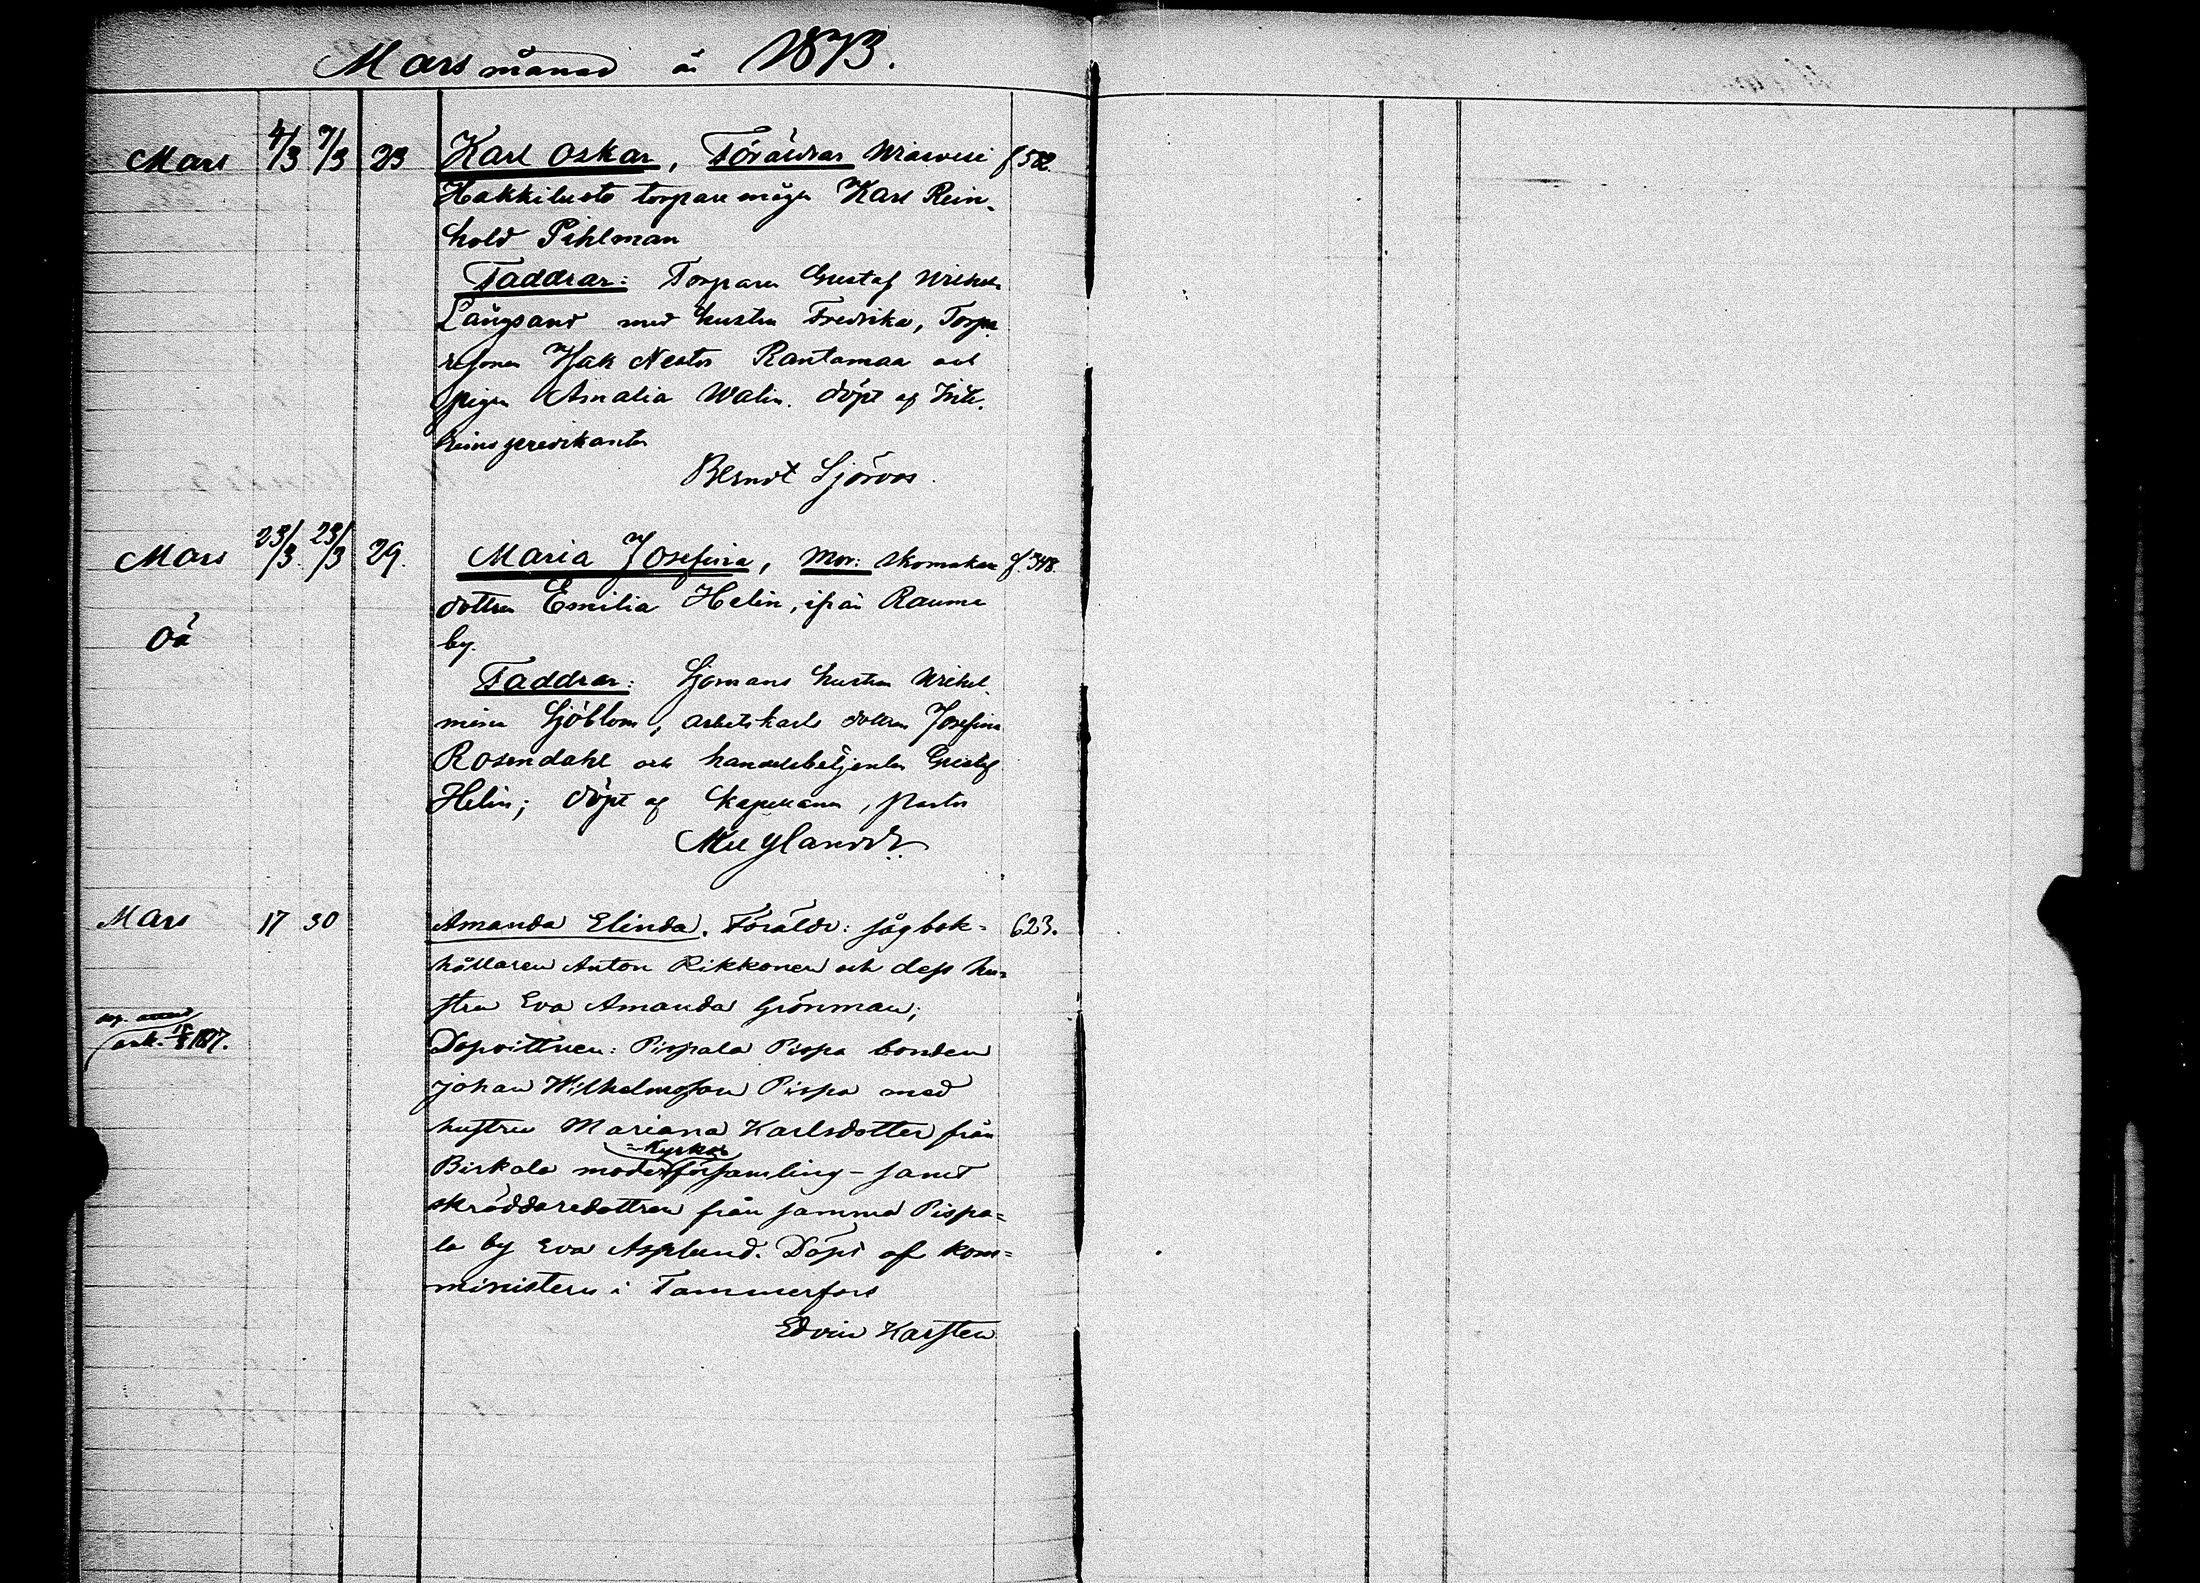 Mars månad år 1873.
Mars 4/3 7/3 23 Karl Oskar, Föräldrar f 582.
Hakkiluoto torpare måge Karl Rein-
hold Pihlman
Faddrar: Torparen Gustaf Wilhelm
Långsand med hustru Fredrika, Torpa
resonen Isak Nestor Rantamaa och
pigan Amalia Walin. döpt af
Berndt Sjöroos.
Mars 23/3. 23/3 29. Maria Josefina, Mor: skomakare f. 348.
dottren Emilia Helin, ifrån Raumo
Oä by.
Faddrar: Sjömans hustrun Wilhel-
mina Sjöblom, arbetskarls dottren Josefina
Rosendahl och handelsbetjenten Gustaf
Helin; döpt af kapellanen, pastor
Mars 17 30 Amanda Elinda. Föräldr: sågbok= 623.
hållaren Anton Rikkonen och dess hu=
stru Eva Amanda Grönman;
Dopvittnen: Pispala Pispa bonden
Johan Wilhelmsson Pispa med
hustru Mariana Karlsdotter från
=kyrko
Birkala moderförsamling – samt
skräddaredottren från samma Pispa=
la by Eva Asplund. Döpt af kom=
ministern i Tammerfors
Edvin Karsten